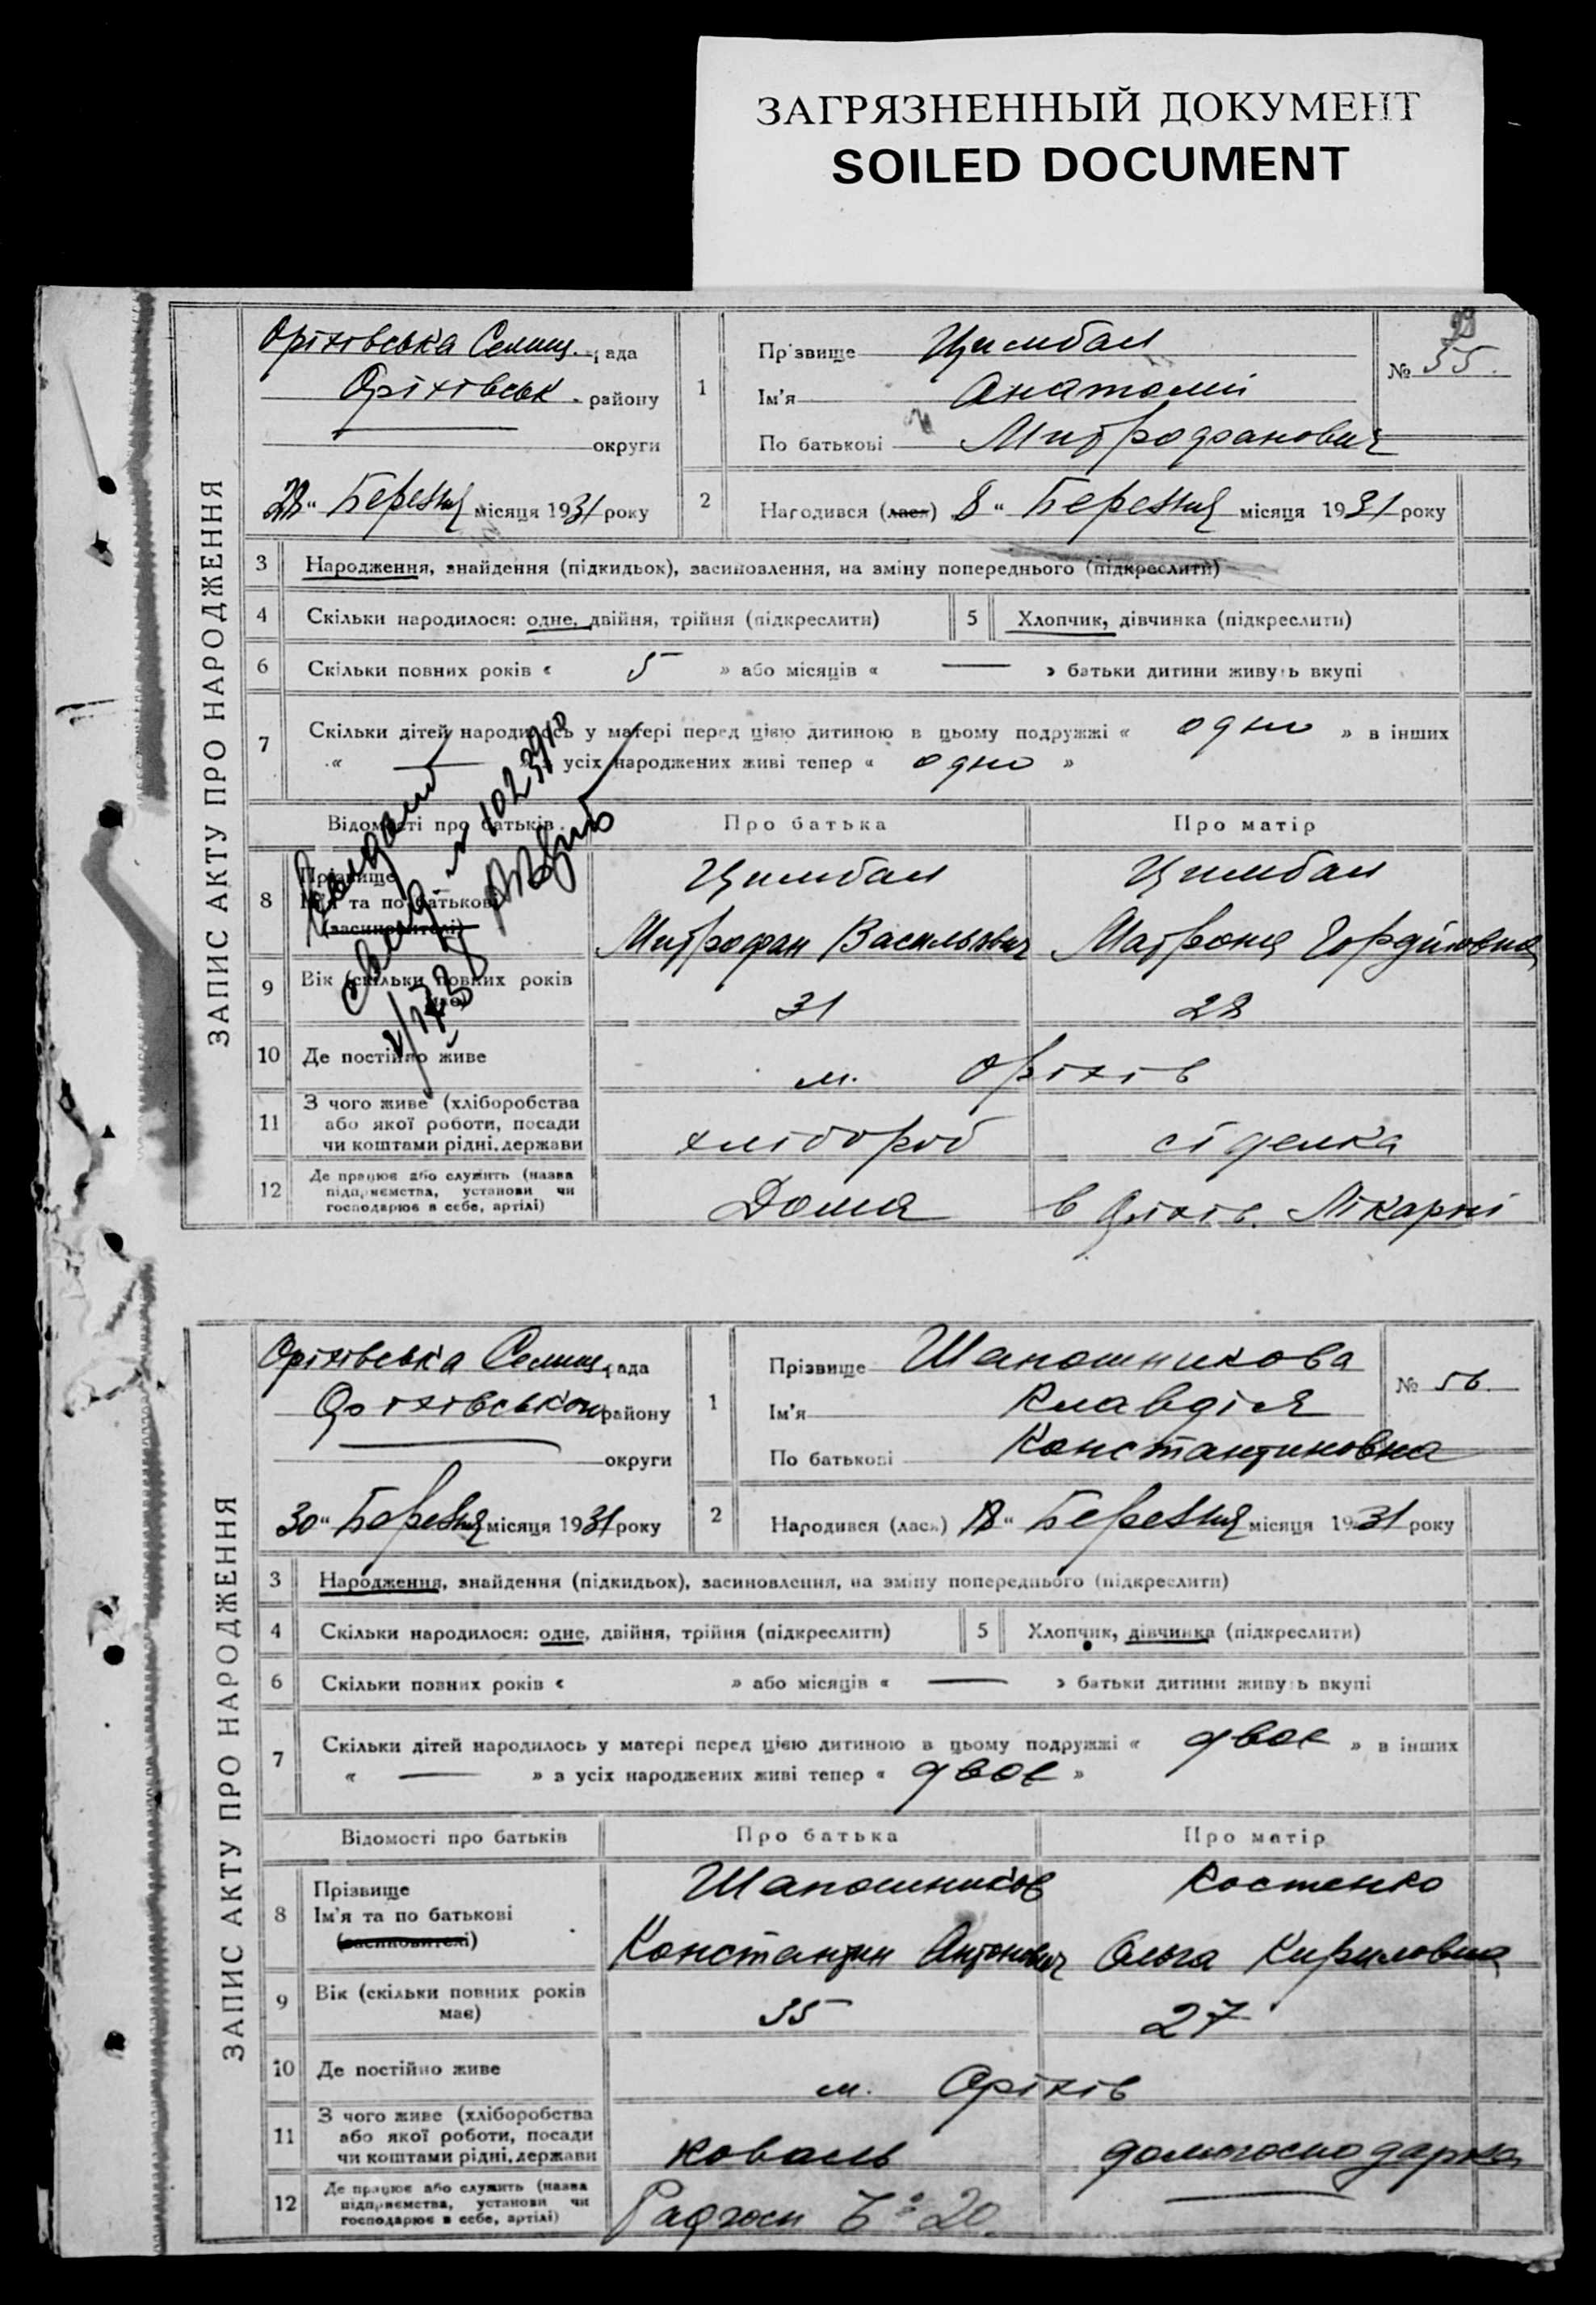 ЗАГРЯЗНЕННЫЙ ДОКУМЕНТ
SOILED DOCUMENT
ЗАПИС АКТУ ПРО НАРОДЖЕННЯ
Оріхівська Селищ. рада
Оріхівськ. району
округи
28 " Березня місяця 1931 року
1
Прізвище Цимбал
Ім'я Анатолій
По батькові Митрофанович
№ 55.
2
Народився (лася) 8 " Березня місяця 1931 року
3 Народження, знайдення (підкидьок), засиновлення, на зміну попереднього (підкреслити)
4 Скільки народилося: одне, двійня, трійня (підкреслити)
5 Хлопчик, дівчинка (підкреслити)
6 Скільки повних років « 5 » або місяців « — » батьки дитини живуть вкупі
7 Скільки дітей народилось у матері перед цією дитиною в цьому подружжі « одно » в інших
« — » з усіх народжених живі тепер « одно »
Відомості про батьків
Про батька
Про матір
8 Прізвище
Ім'я та по батькові
(засиновителі)
Цимбал
Митрофан Васильович
Цимбал
Матрона Гордійовна
9 Вік (скільки повних років має)
31
28
10 Де постійно живе
м. Оріхів
11 З чого живе (хліборобства
або якої роботи, посади
чи коштами рідні, держави
хлібороб
сіделка
12 Де працює або служить (назва
підприємства, установи чи
господарює в себе, артілі)
Дома
в Оріхів. Лікарні
ЗАПИС АКТУ ПРО НАРОДЖЕННЯ
Оріхівська Селищ. рада
Оріхівського району
округи
30 " Березня місяця 1931 року
1
Прізвище Шапошникова
Ім'я Клавдія
По батькові Константиновна
№ 56.
2
Народився (лася) 18 " Березня місяця 1931 року
3 Народження, знайдення (підкидьок), засиновлення, на зміну попереднього (підкреслити)
4 Скільки народилося: одне, двійня, трійня (підкреслити)
5 Хлопчик, дівчинка (підкреслити)
6 Скільки повних років « » або місяців « — » батьки дитини живуть вкупі
7 Скільки дітей народилось у матері перед цією дитиною в цьому подружжі « двоє » в інших
« — » з усіх народжених живі тепер « двоє »
Відомості про батьків
Про батька
Про матір
8 Прізвище
Ім'я та по батькові
(засиновителі)
Шапошников
Константин Антонович
Костенко
Ольга Кириловна
9 Вік (скільки повних років
має)
35
27
10 Де постійно живе
м. Оріхів
11 З чого живе (хліборобства
або якої роботи, посади
чи коштами рідні, держави
коваль
домогосподарка
12 Де працює або служить (назва
підприємства, установи чи
господарює в себе, артілі)
Радгосп 20